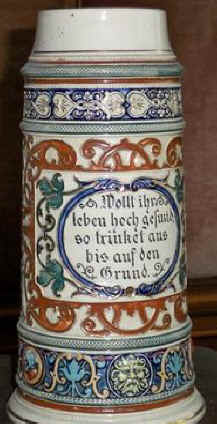 Wollt ihr
leben hoch gesund
so trinket aus
bis auf den
Grund.